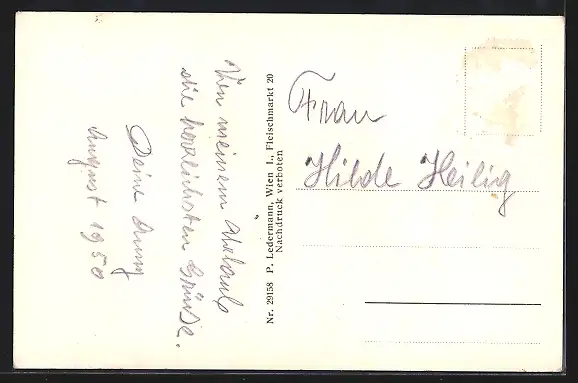 Von meinem Urlaub
die herzlichsten Grüße.
Deine Anny
August 1950
Nr. 29158 P. Ledermann, Wien I., Fleischmarkt 20
Nachdruck verboten
Frau
Hilde Heilig